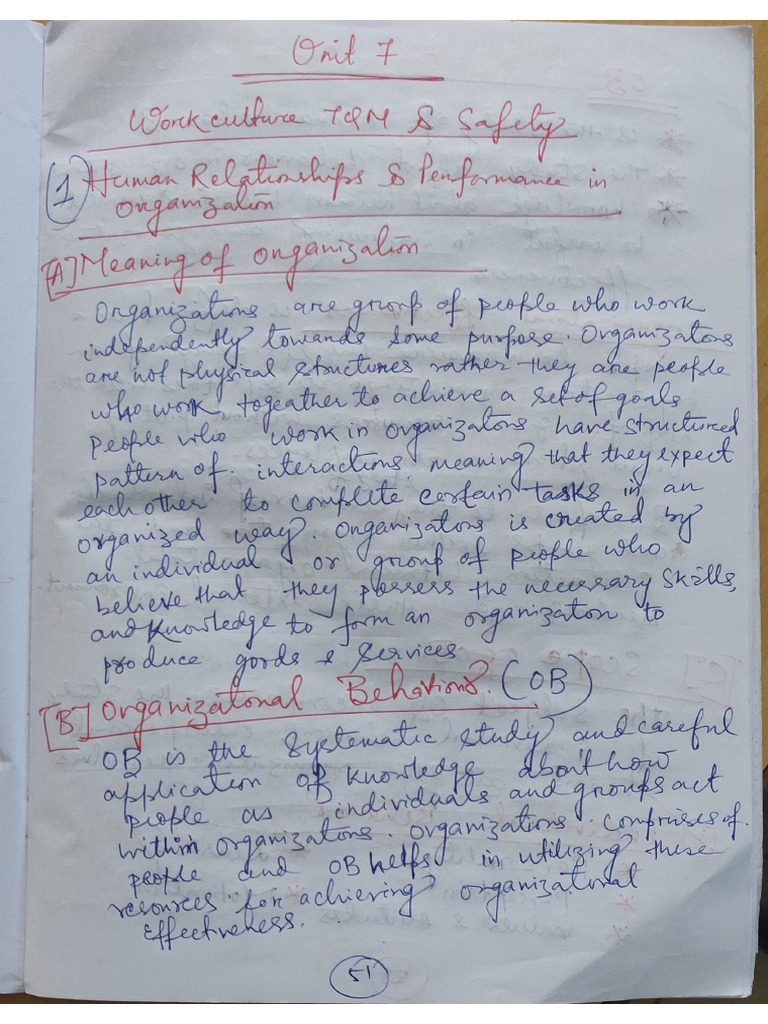 Unit 7
Work culture TQM & Safety
(1) Human Relationships & Performance in
Organization
[A] Meaning of Organization
Organizations are group of people who work
independently towards some purpose. Organizatons
are not physical structures rather they are people
who work togeather to achieve a set of goals
people who work in organizatons have structured
pattern of interactions meaning that they expect
each other to complete certain tasks in an
organized way. Organizatons is created by
an individual or group of people who
believe that they possess the necessary skills,
and knowledge to form an organization to
produce goods & services
[B] Organizatonal Behaviour. (OB)
OB is the systematic study and careful
application of knowledge about how
people as individuals and groups act
within organizatons. Organizations comprises of
people and OB helps in utilizing these
resources for achieving organizatonal
effectiveness.
51